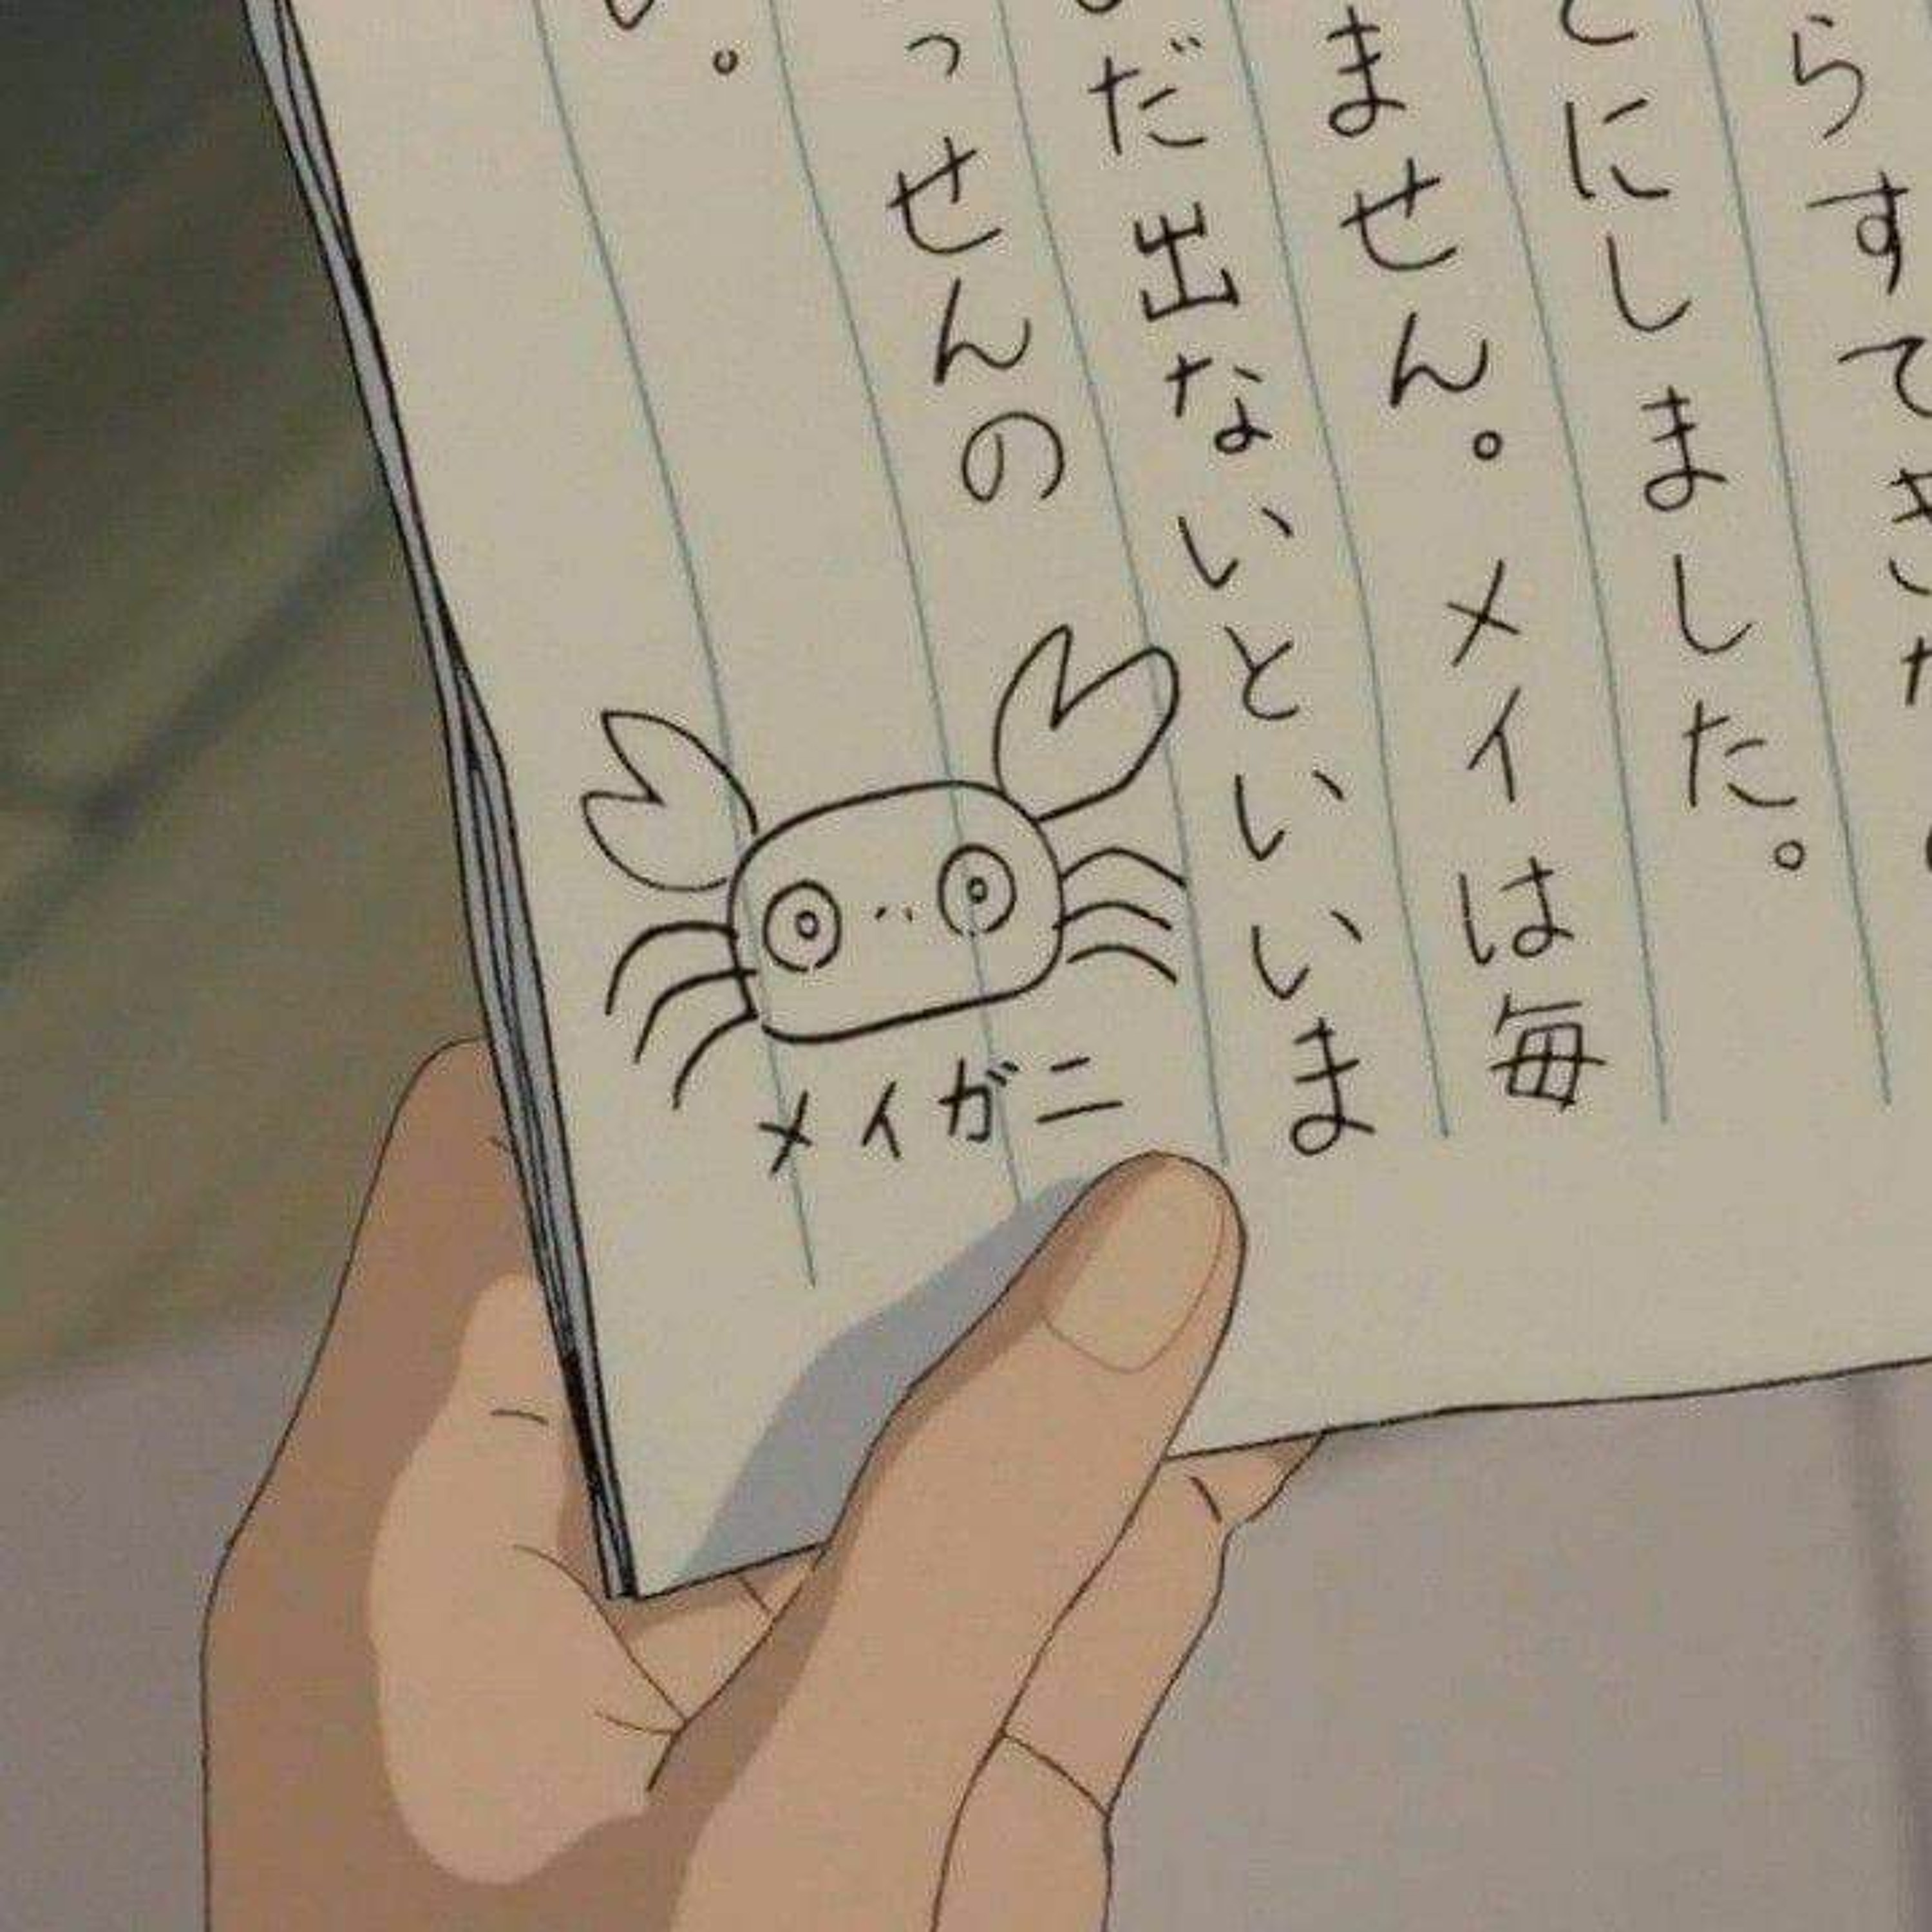 らすてき
にしました。
ません。メイは毎
だ出ないといいま
っせんの
。
メイガニ